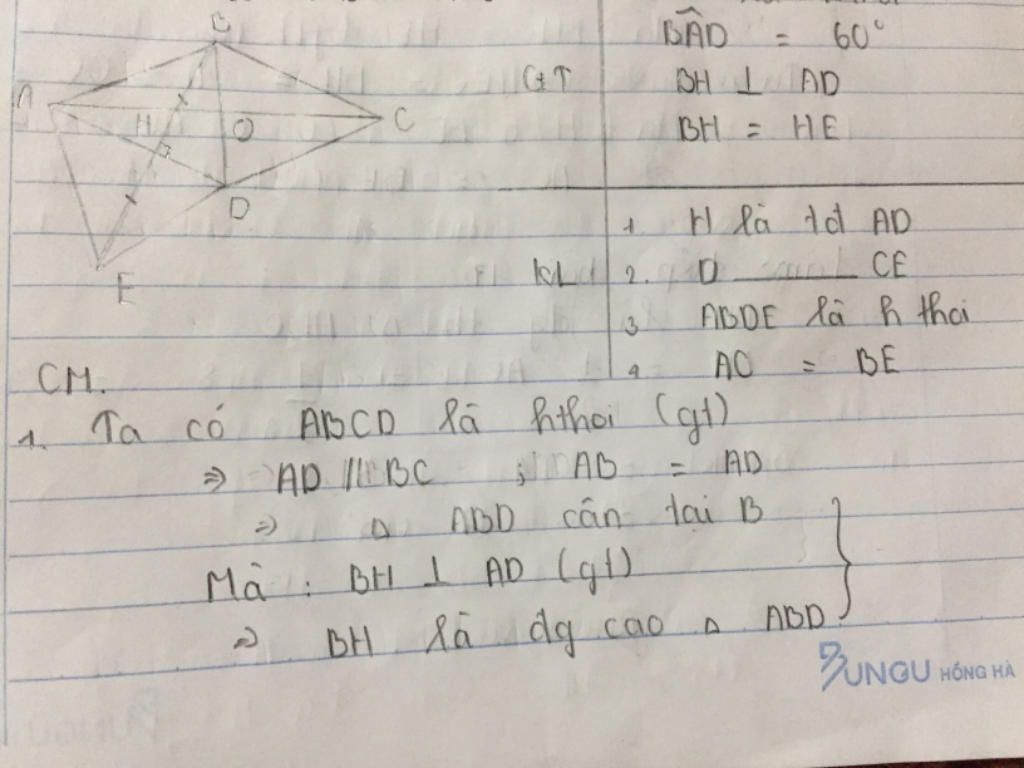 B
A
H
O
C
D
E
GT
BÂD = 60°
BH ⊥ AD
BH = HE
KL
1 H là tđ AD
2. D ______ CE
3 ABDE là h thoi
4 AC = BE
CM.
1. Ta có ABCD là hthoi (gt)
⇒ AD // BC ; AB = AD
⇒ △ ABD cân tại B
Mà : BH ⊥ AD (gt)
⇒ BH là đg cao △ ABD
BUNGU HỒNG HÀ